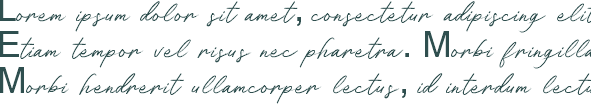 Lorem ipsum dolor sit amet, consectetur adipiscing elit
Etiam tempor vel risus nec pharetra. Morbi fringilla
Morbi hendrerit ullamcorper lectus, id interdum lectu